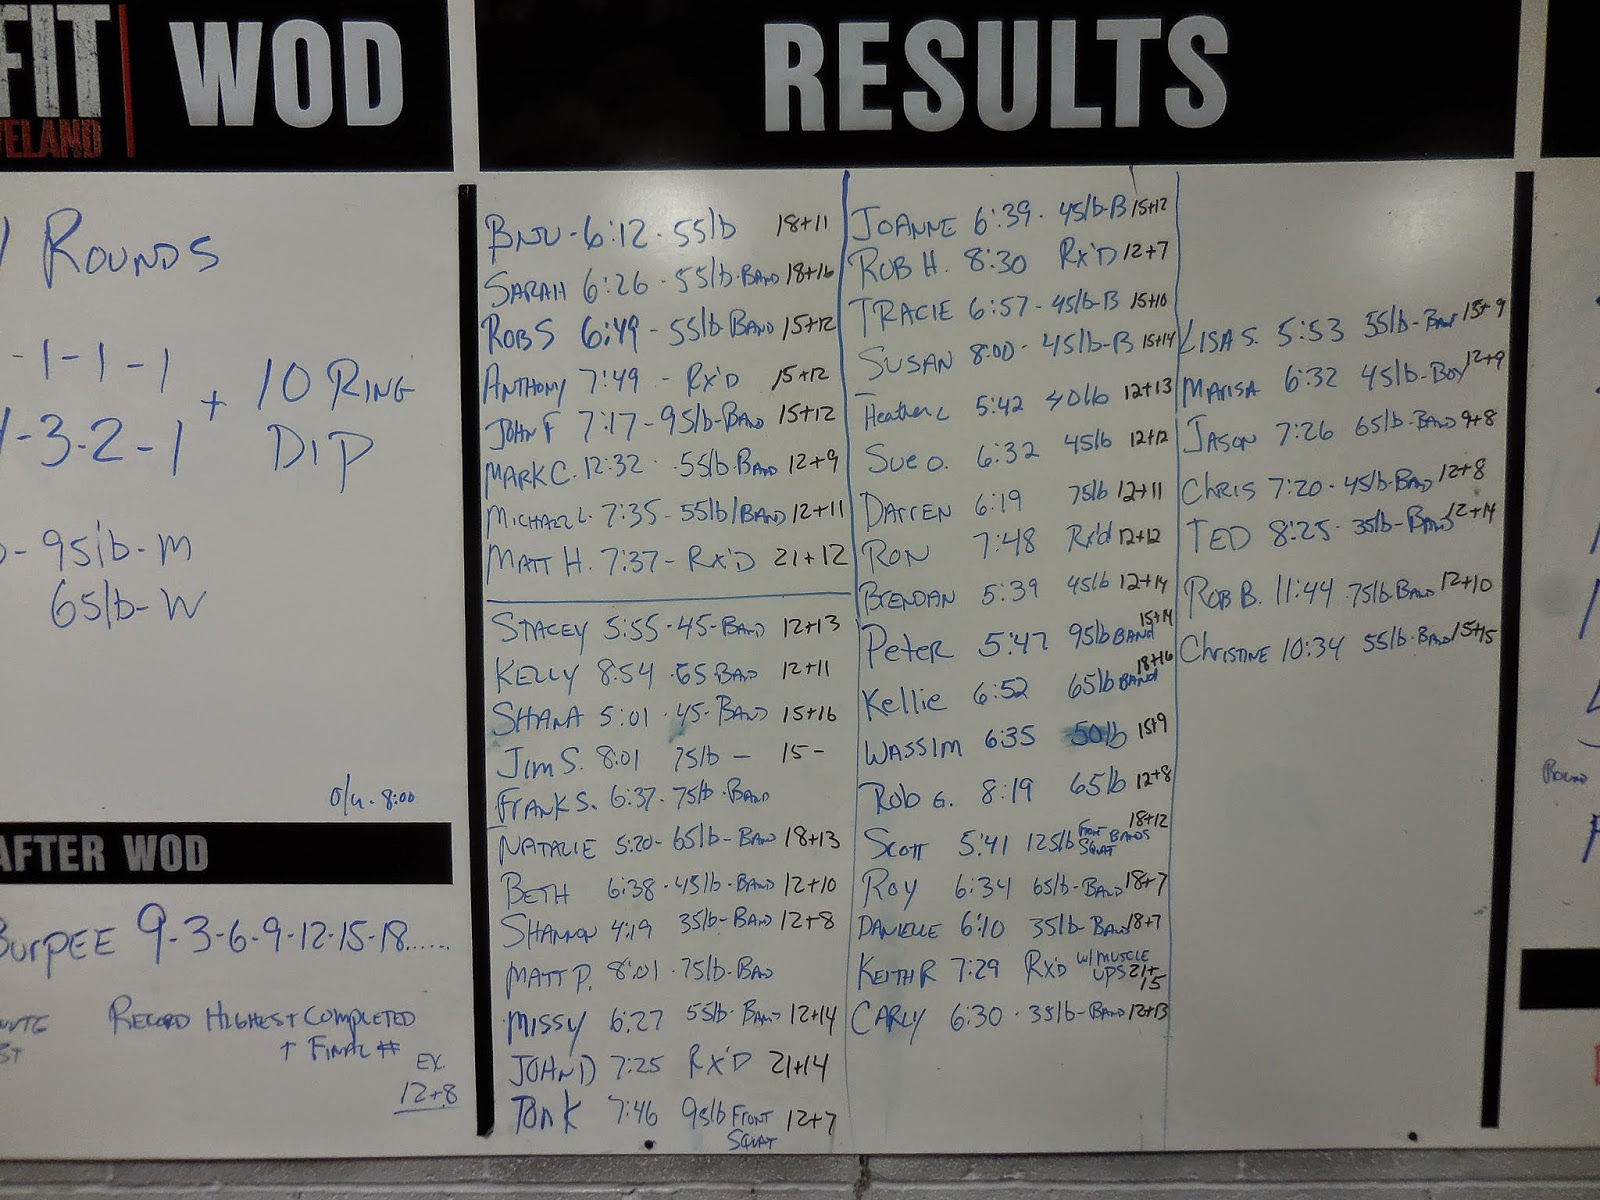 FIT
WOD
RESULTS
ELAND
ROUNDS
-1-1-1
-3-2-1 + 10 RING
DIP
- 95lb - M
65lb - W
8:00
AFTER WOD
BURPEE 9-3-6-9-12-15-18......
RECORD HIGHEST COMPLETED
↑ FINAL #
EX.
12+8
6:12 - 55lb 18+11
SARAH 6:26 - 55lb - BAND 18+16
ROB S 6:49 - 55lb - BAND 15+12
ANTHONY 7:49 - RX'D 15+12
JOHN F 7:17 - 95lb - BAND 15+12
MARK C. 12:32 - 55lb - BAND 12+9
MICHAEL L. 7:35 - 55lb/BAND 12+11
MATT H. 7:37 - RX'D 21+12
STACEY 5:55 - 45 - BAND 12+13
KELLY 8:54 - 65 - BAND 12+11
SHANA 5:01 - 45 - BAND 15+16
JIM S. 8:01 75lb - 15 -
FRANK S. 6:37 - 75lb - BAND
NATALIE 5:20 - 65lb - BAND 18+13
BETH 6:38 - 45lb - BAND 12+10
SHANNON 4:19 35lb - BAND 12+8
MATT P. 8:01 - 75lb - BAND
MISSY 6:27 55lb - BAND 12+14
JOHN D 7:25 RX'D 21+14
TOM K 7:46 95lb FRONT 12+7
SQUAT
JOANNE 6:39 - 45lb - B 15+12
ROB H. 8:30 RX'D 12+7
TRACIE 6:57 - 45lb - B 15+10
SUSAN 8:00 - 45lb - B 15+14
Heather C 5:42 40lb 12+13
SUE O. 6:32 45lb 12+12
DARREN 6:19 75lb 12+11
RON 7:48 RX'd 12+12
BRENDAN 5:39 45lb 12+14
Peter 5:47 95lb BAND 15+14
Kellie 6:52 65lb BAND 18+16
WASSIM 6:35 50lb 15+9
ROB G. 8:19 65lb 12+8
SCOTT 5:41 125lb FRONT SQUAT BANDS 18+12
ROY 6:34 65lb - BAND 18+7
DANIELLE 6:10 35lb - BAND 18+7
KEITH R 7:29 RX'D W/ MUSCLE
UPS 21+15
CARLY 6:30 - 35lb - BAND 12+13
LISA S. 5:53 55lb - BAND 15+9
MARISA 6:32 45lb - BOX 12+9
JASON 7:26 65lb - BAND 9+8
CHRIS 7:20 - 45lb - BAND 12+8
TED 8:25 - 35lb - BAND 12+14
ROB B. 11:44 75lb - BAND 12+10
CHRISTINE 10:34 55lb - BAND 15+15
ROUND